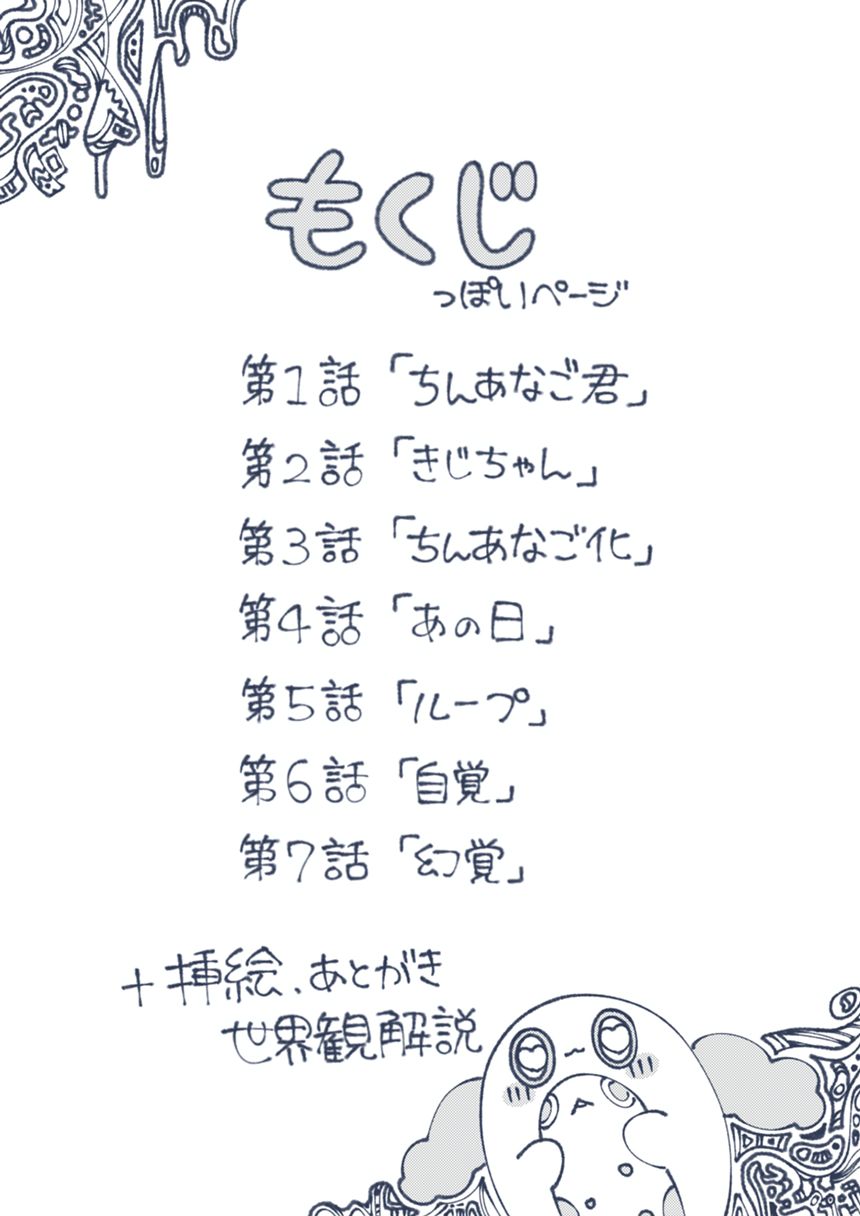 もくじ
っぽいページ
第1話「ちんあなご君」
第2話「きじちゃん」
第3話「ちんあなご化」
第4話「あの日」
第5話「ループ」
第6話「自覚」
第7話「幻覚」
+挿絵、あとがき
世界観解説